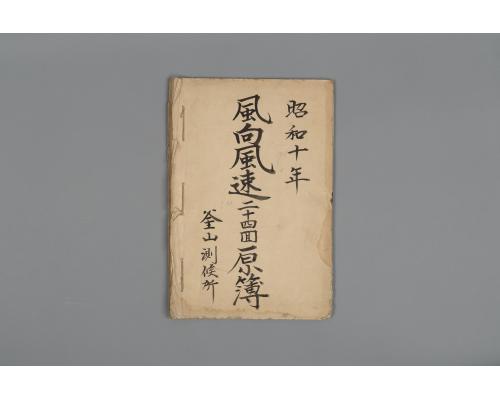 昭和十年
風向風速二十四回原簿
釜山測候所